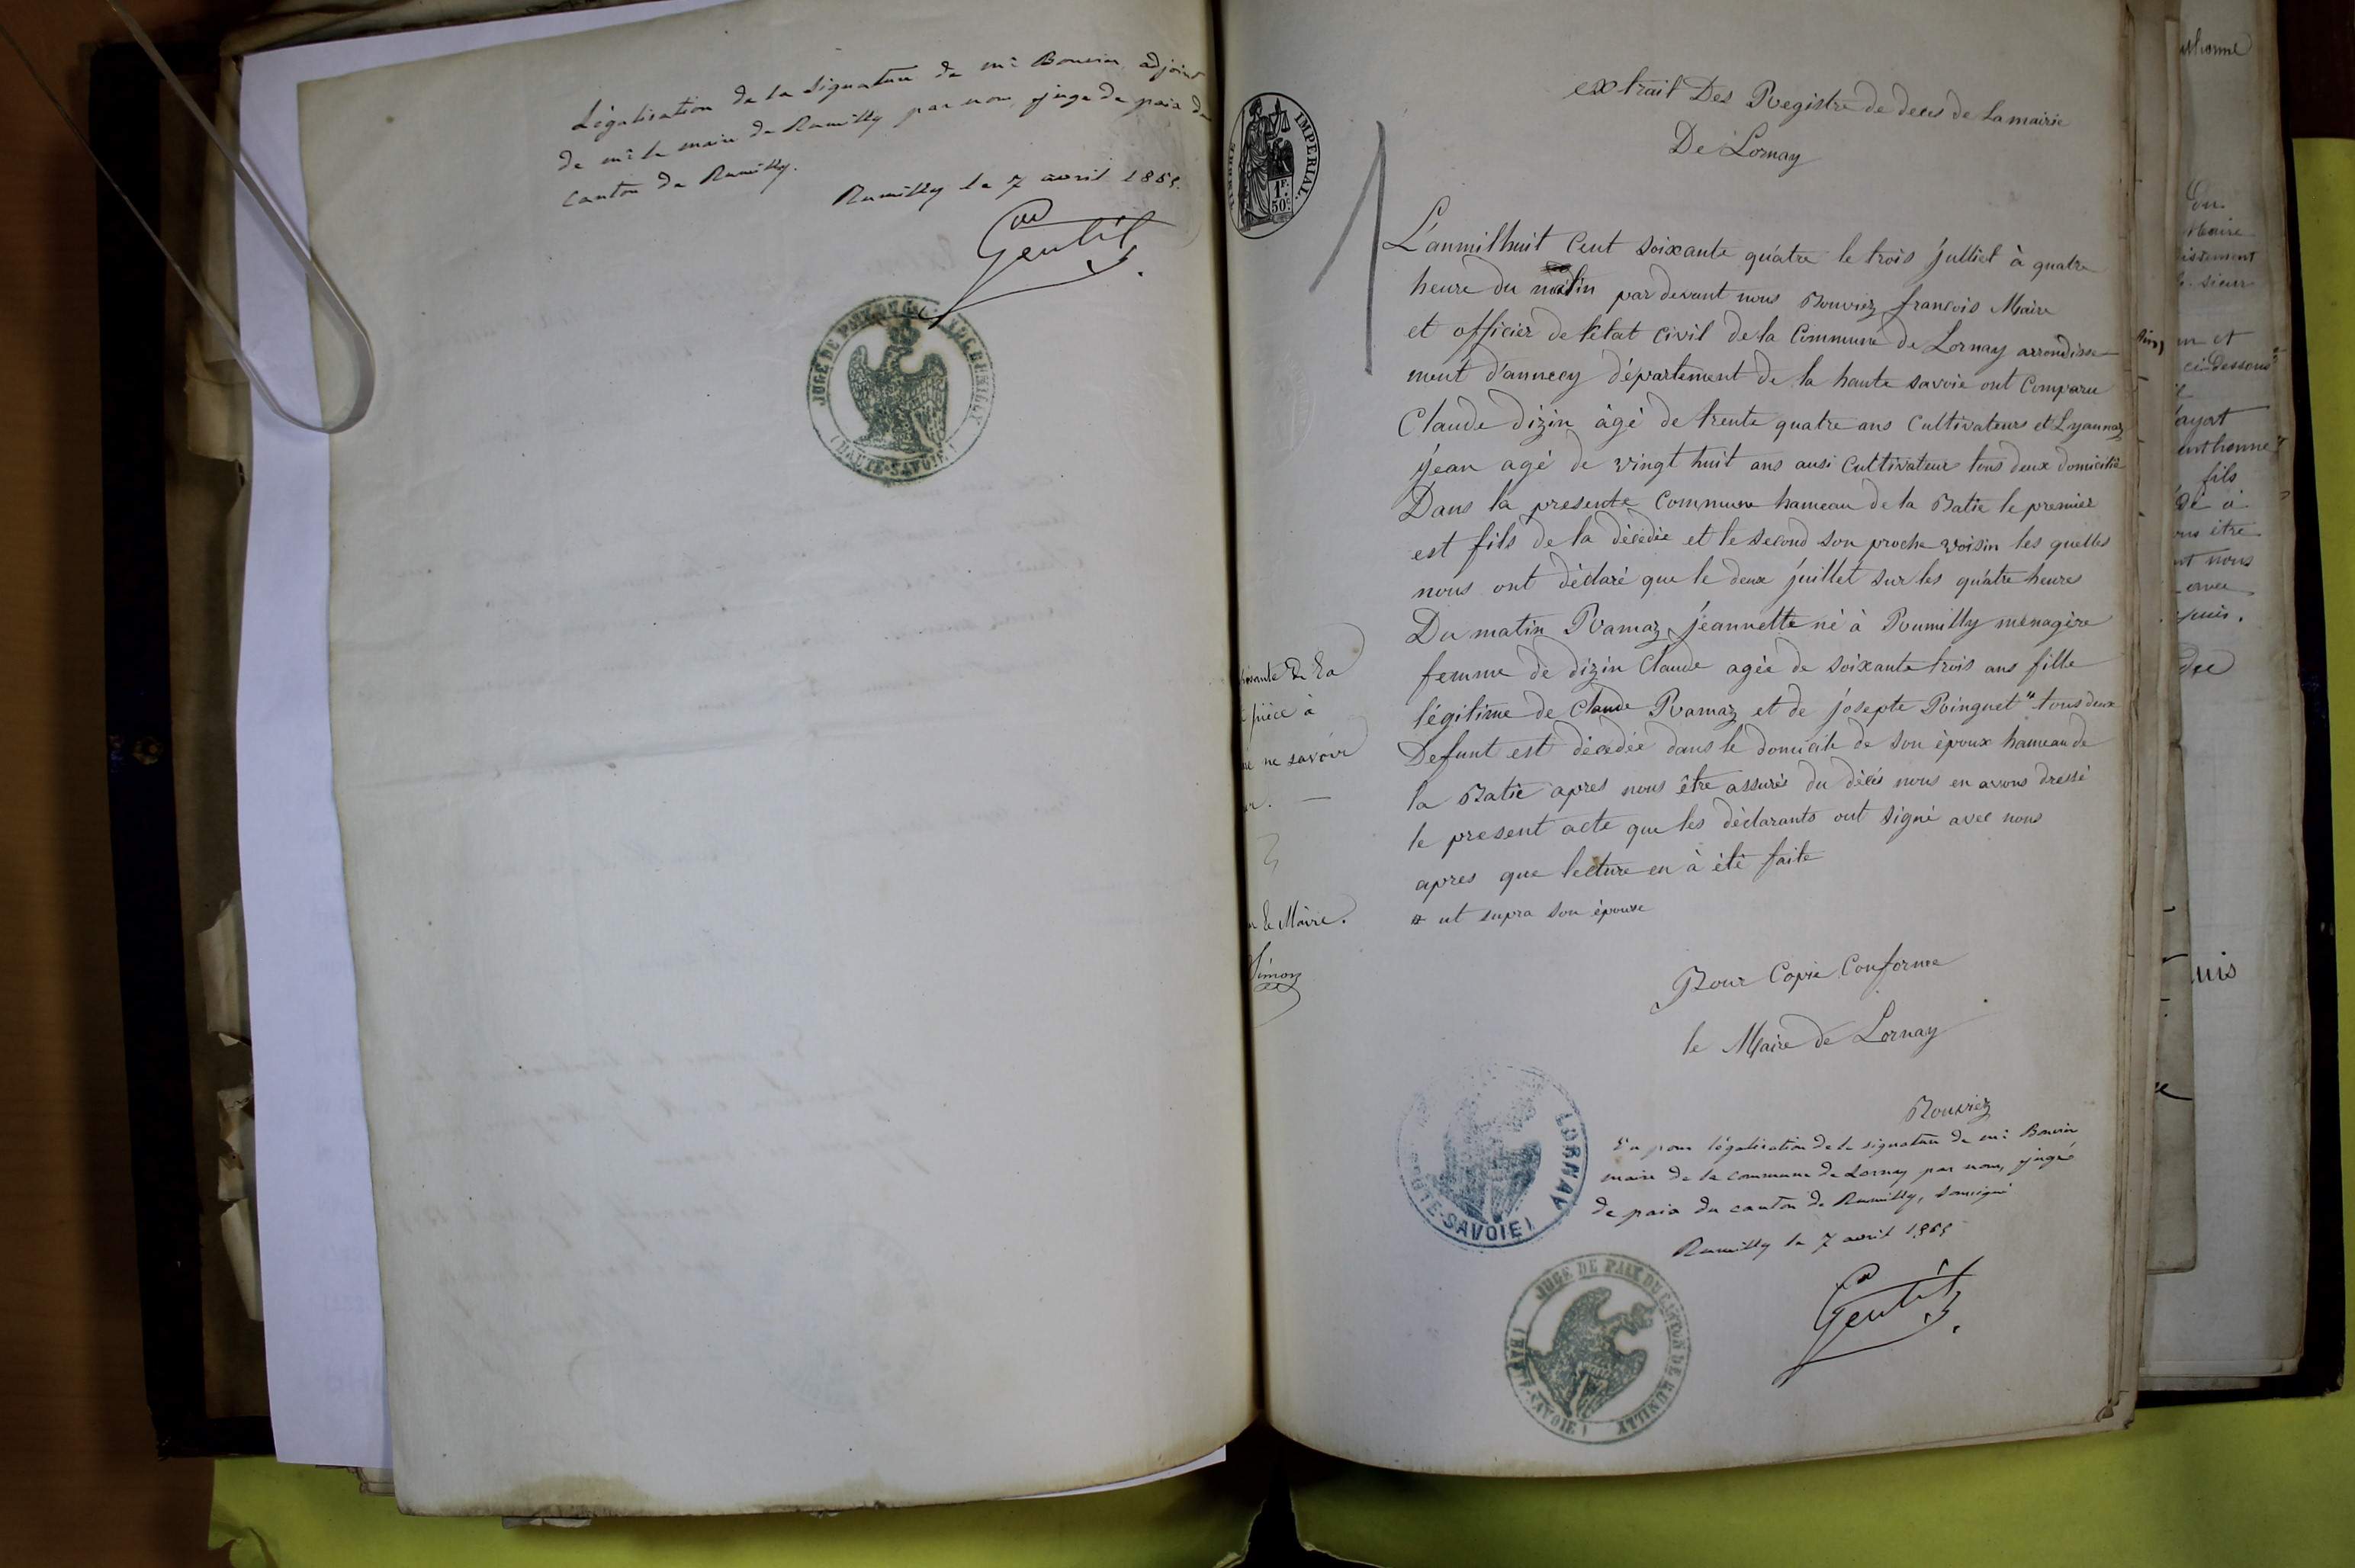 Légalisation de la signature de mr Bouvier adjoint
de mr le maire de Rumilly par nous, juge de paix du
canton de Rumilly.
Rumilly le 7 avril 1865.
Gentil
JUGE DE PAIX DU CANTON DE RUMILLY
(HAUTE-SAVOIE)
de La
pièce à
ne savoir
Le Maire.
Simon
TIMBRE IMPERIAL
1F.
50c.
extrait Des Registre de deces de La mairie
De Lornay
L'an mil huit Cent Soixante quatre le trois julliet à quatre
heure du matin par devant nous Bouvier francois Maire
et officier de l'état Civil de la Commune de Lornay arrondisse-
ment d'annecy département de la haute savoie ont Comparu
Claude dizin âgé de trente quatre ans Cultivateurs et Lyonnaz
jean agé de vingt huit ans ausi Cultivateur tous deux domicilié
Dans la presente Commune hameau de la Batie le premier
est fils de la décédée et le Second son proche voisin les quelles
nous ont déclaré que le deux juillet sur les quâtre heures
Du matin Ramaz jeannette né à Rumilly ménagère
femme de dizin Claude agée de soixante trois ans fille
légitime de Claude Ramaz et de josepte Poinguet " tous deux
Defunt est décédée dans le domicile de son époux hameau de
la Batie apres nous être assurés du décés nous en avons dressé
le present acte que les déclarants ont signé avec nous
apres que lecture en à été faite
ut supra son épouse
Pour Copie Conforme
le Maire de Lornay
Bouvier
Vu pour légalisation de la signature de mr Bouvier
maire de la commune de Lornay par nous, juge
de paix du canton de Rumilly, soussigné
Rumilly le 7 avril 1865
Gentil
LORNAY
HAUTE-SAVOIE)
JUGE DE PAIX DU CANTON DE RUMILLY
(HAUTE-SAVOIE)
Maire
le sieur
et
ci-Dessous
fils
être
nous
avec